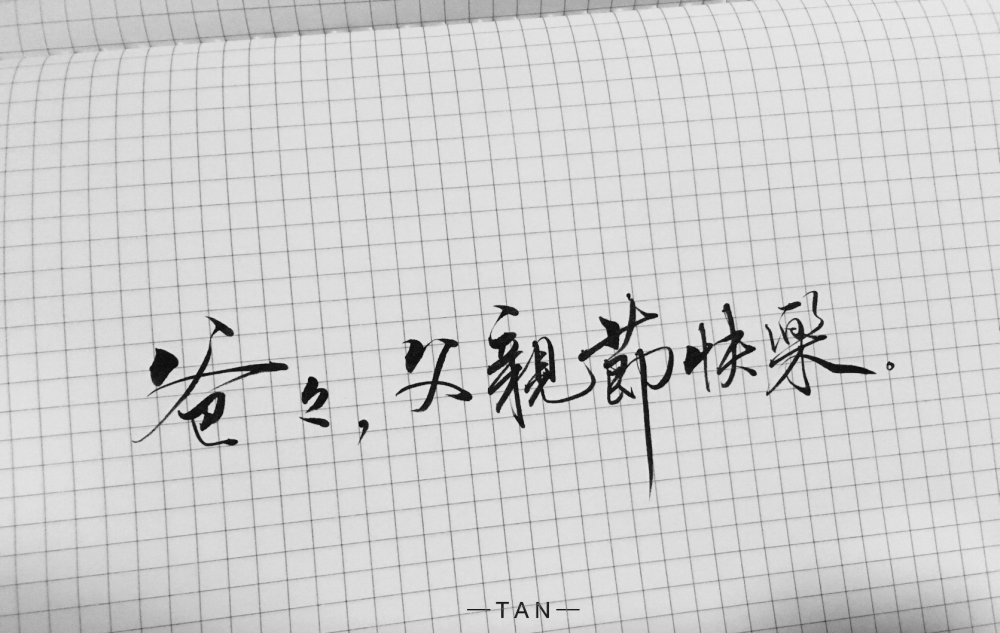 爸々，父親節快樂。
—TAN—